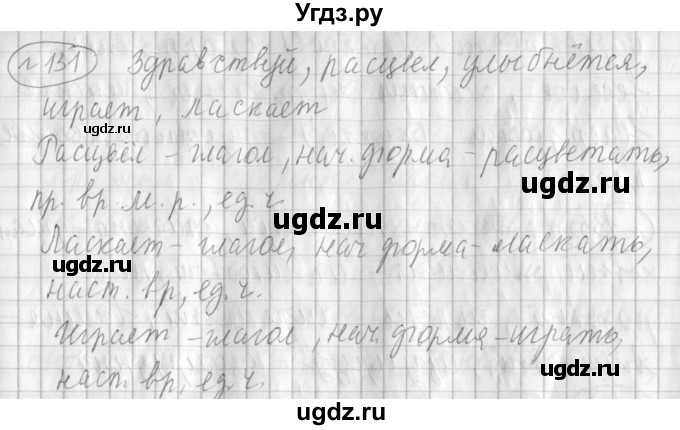 Угдз.ру
№131 Здравствуй, расцвел, улыбнётся,
играет, ласкает
ugdz.ru
Расцвел - глагол, нач. форма - расцветать,
ugdz.ru
пр. вр. м. р., ед. ч.
ugdz.ru
Ласкает - глагол, нач форма - ласкать,
ugdz.ru
наст. вр, ед. ч.
ugdz.ru
Играет - глагол, нач. форма - играть,
ugdz.ru
наст. вр, ед. ч.
ugdz.ru
ugdz.ru